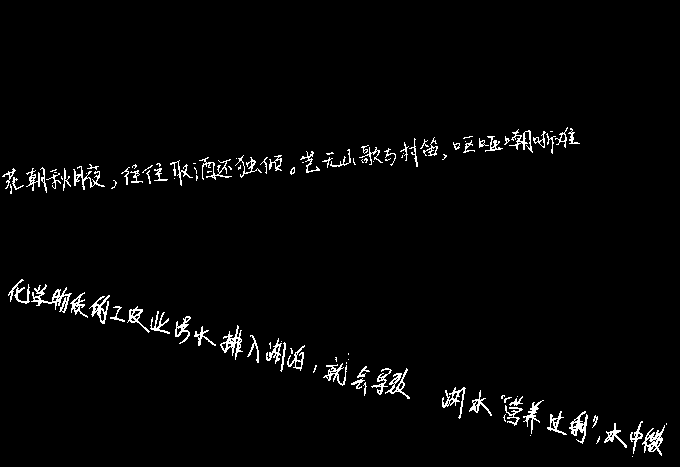 花朝秋月夜，往往取酒还独倾。岂无山歌与村笛，呕哑嘲哳难
化学物质的工农业污水排入湖泊，就会导致 湖水“营养过剩”，水中微